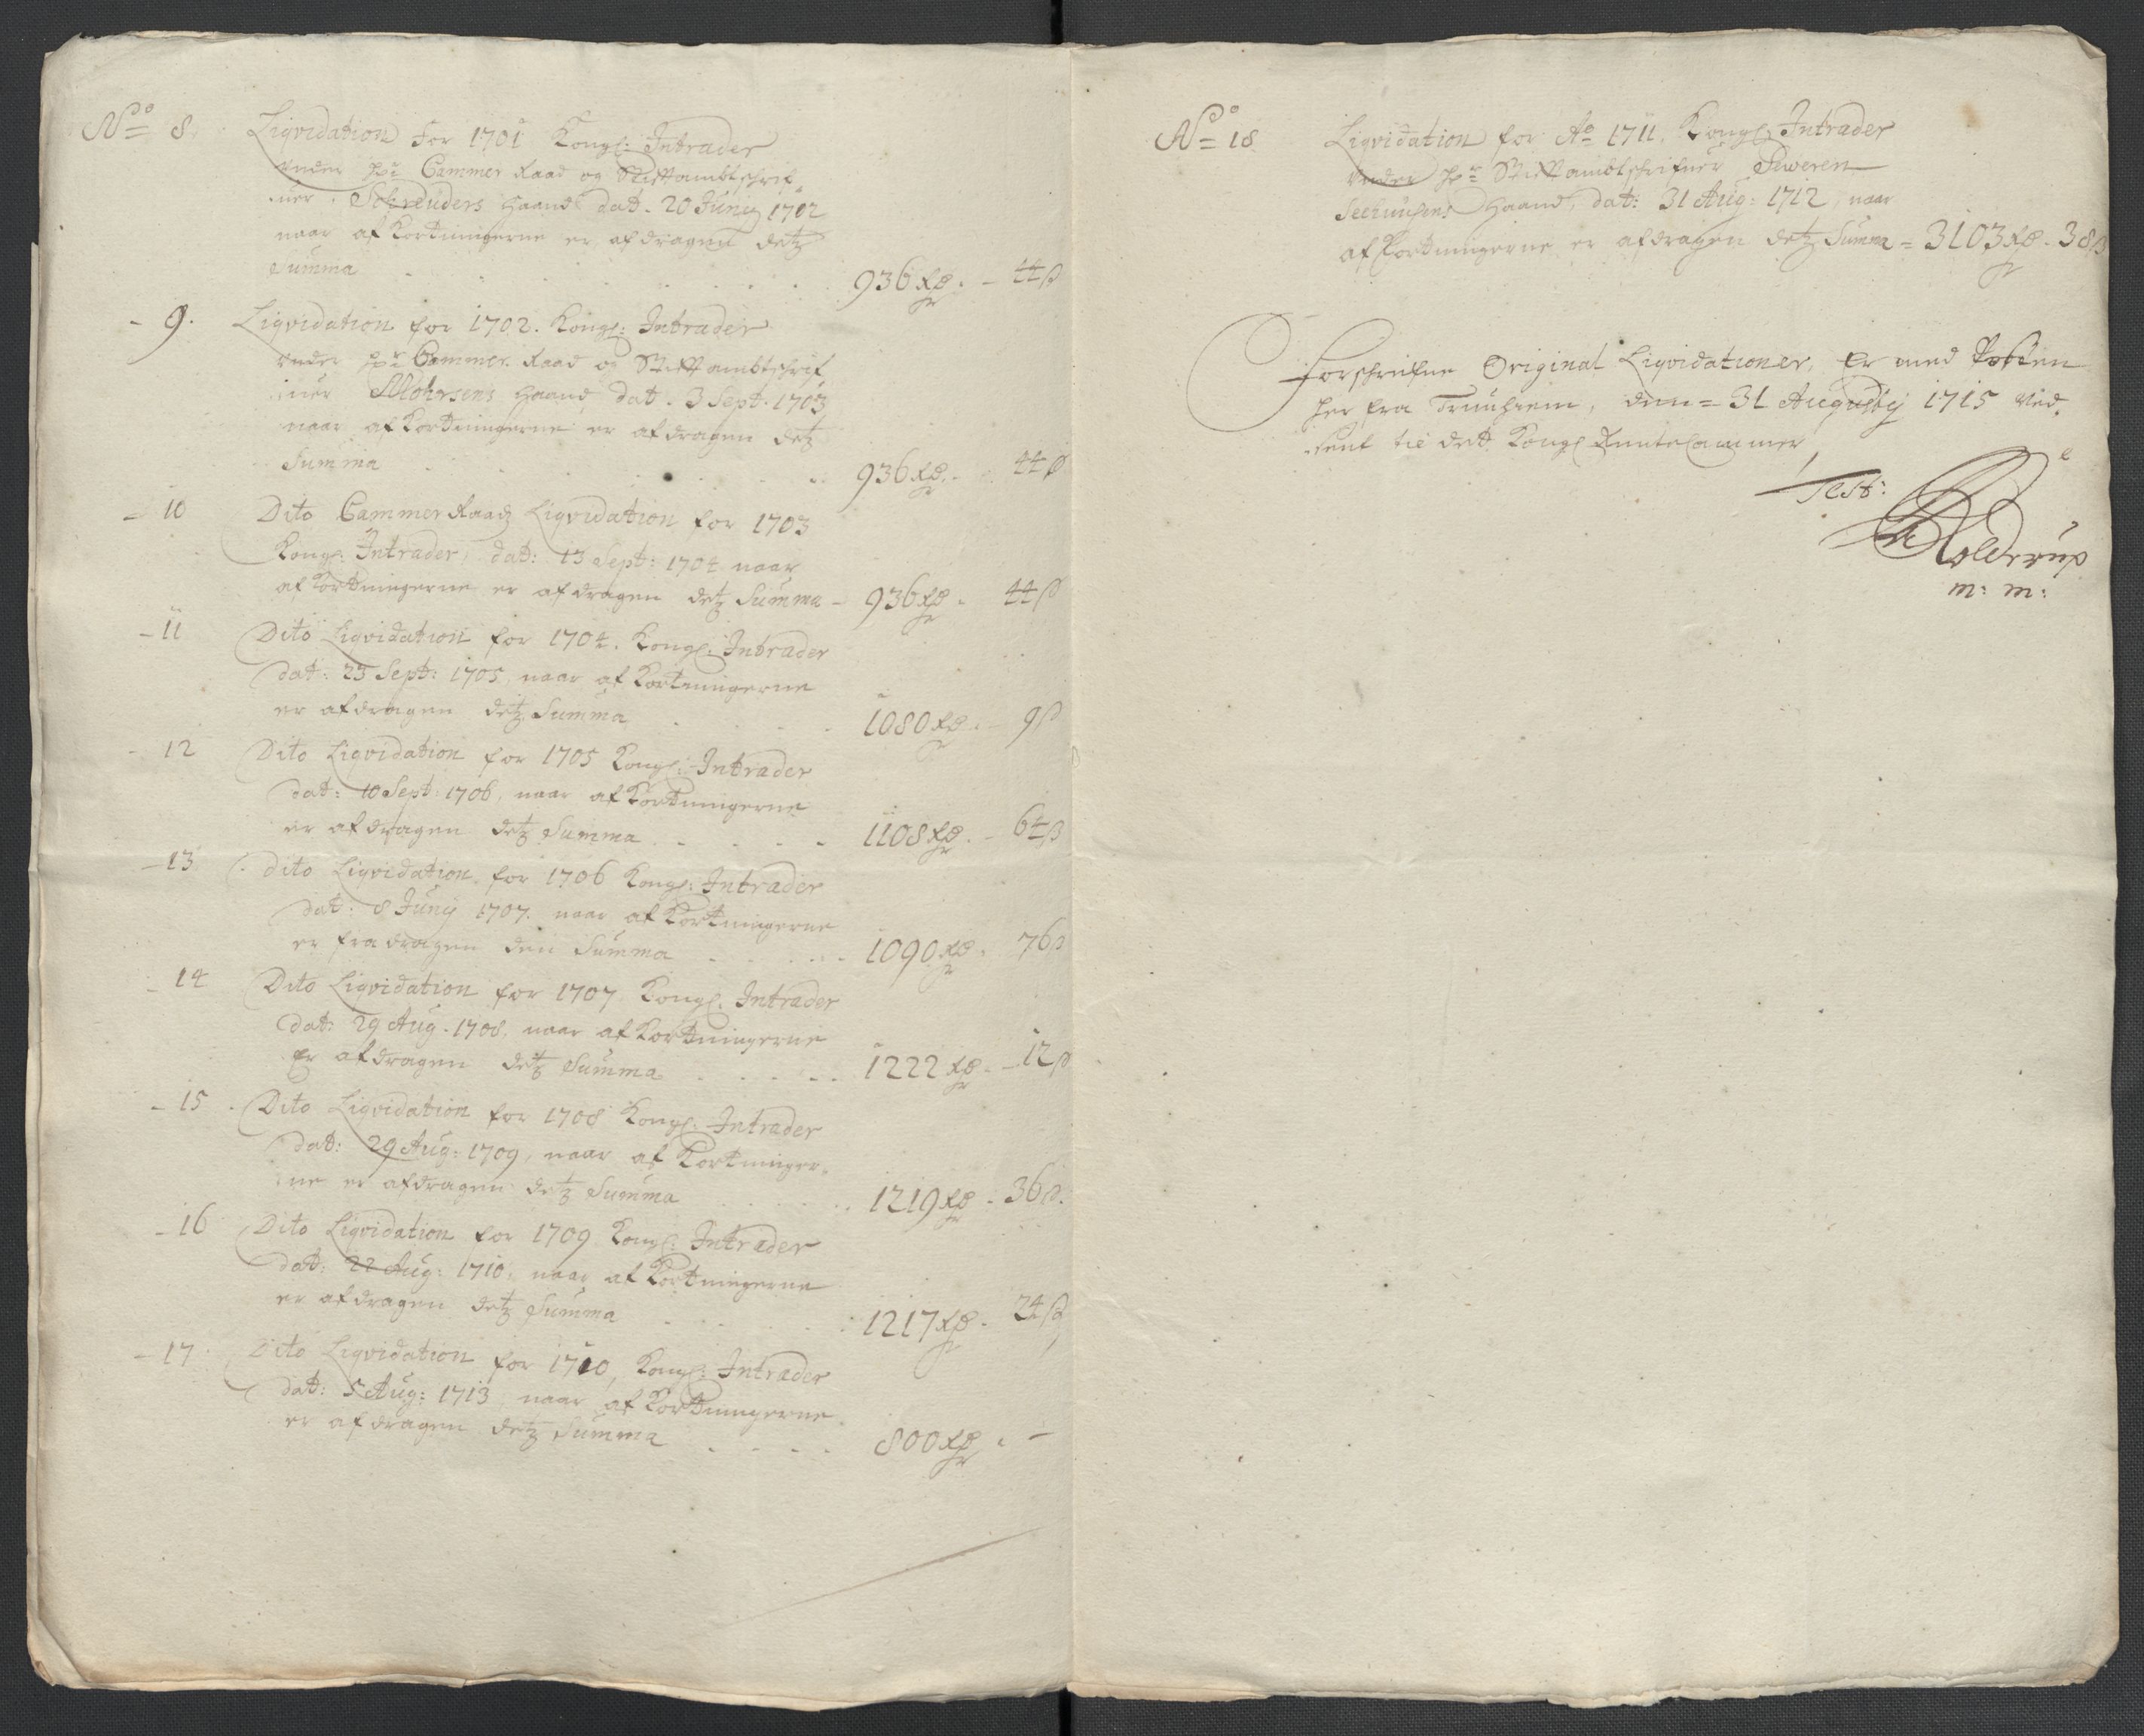 No 8. Liqvidation for 1701 Kongl: Intrader
under hr: Cammer Raad og Stiftambtschrif-
uer Schreuders haand dat. 20 Junij 1702
naar afkortningerne er afdragen detz
Summa 936 rdr. - 44 ß
- 9. Liqvidation for 1702. Kongl: Intrader
under hr: Cammer Raad og Stiftambtschrif
uer Mohrsens haand, dat. 3 Sept. 1703
naar afkortningerne er afdragen detz
Summa 936 rdr. 44 ß
- 10 Dito Cammer Raadz Liqvidation for 1703
Kongl: Intrader, dat: 13 Sept: 1704 naar
afkortningerne er afdragen detz Summa - 936 rdr. 44 ß
- 11 Dito Liqvidation for 1704. Kongl: Intrader
dat: 23 Sept: 1705, naar afkortningerne
er afdragen detz Summa 1080 rdr. - 9 ß
- 12 Dito Liqvidation for 1705 Kongl: Intrader
dat: 10 Sept: 1706, naar afkortningerne
er afdragen detz Summa 1108 rdr. - 64 ß
- 13 Dito Liqvidation for 1706 Kongl: Intrader
dat: 8 Junij 1707. naar afkortningerne
er fradragen den Summa 1090 rdr. 76 ß
- 14 Dito Liqvidation for 1707 Kongl. Intrader
dat: 29 Aug. 1708. naar afkortningerne
Er afdragen detz Summa 1222 rdr. - 12 ß
- 15 Dito Liqvidation for 1708 Kongl. Intrader
dat: 29 Aug: 1709, naar afkortninger-
ne er afdragen detz Summa 1219 rdr. 36 ß.
- 16 Dito Liqvidation for 1709 Kongl: Intrader
dat: 22 Aug: 1710, naar afkortningerne
er afdragen detz Summa 1217 rdr. 24 ß
- 17 Dito Liqvidation for 1710, Kongl: Intrader
dat: 5 Aug: 1713, naar afkortningerne
er afdragen detz Summa 800 rdr. -
No 18. Liqvidation for Ao 1711. Kongl: Intrader
under hr: Stiftambtschrifuer Siweren
Seehuusens haand, dat: 31 Aug: 1712, naar
afkortningerne er afdragen detz Summa = 3103 rdr. 38 ß
Forschrefne Original Liqvidationer, Er med Posten
her fra Trundhiem, den = 31 Augustij 1715 Ned.
sent til det Kongl Rente Cammer
Test:
Holdrup
m: m: